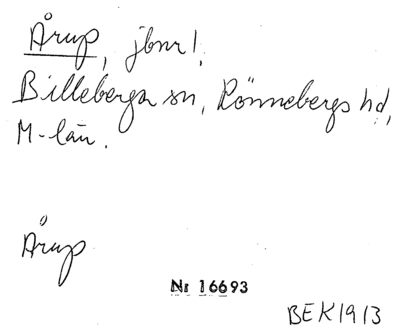 Årup, jbnr!
Billeberga sn, Rönnebergs hd,
M-län.
Årup
Nr 16693
BEK1913